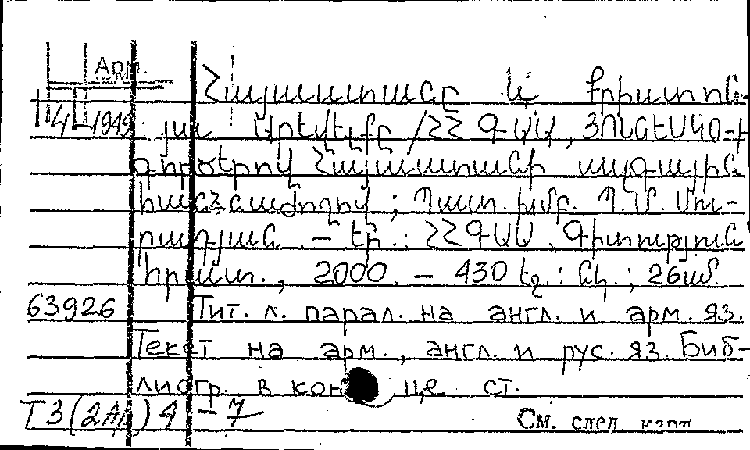 Арм.
Հայաստանը և քրիստոն-
յա Արևելքը / ՀՀ ԳԱԱ, ՅՈՒՆԵՍԿՕ-ի
գործերով Հայաստանի ազգային
հանձնաժողով ; Պատ. խմբ. Պ.Մ. Մու-
րադյան. – Եր. : ՀՀ ԳԱԱ Գիտություն
հրատ., 2000. – 430 էջ : նկ. ; 26սմ
63926 Тит. л. парал. на англ. и арм. яз.
Текст на арм., англ. и рус. яз. Биб-
лиогр. в конце ст.
Т3(2Ар)4-7 См. след. карт